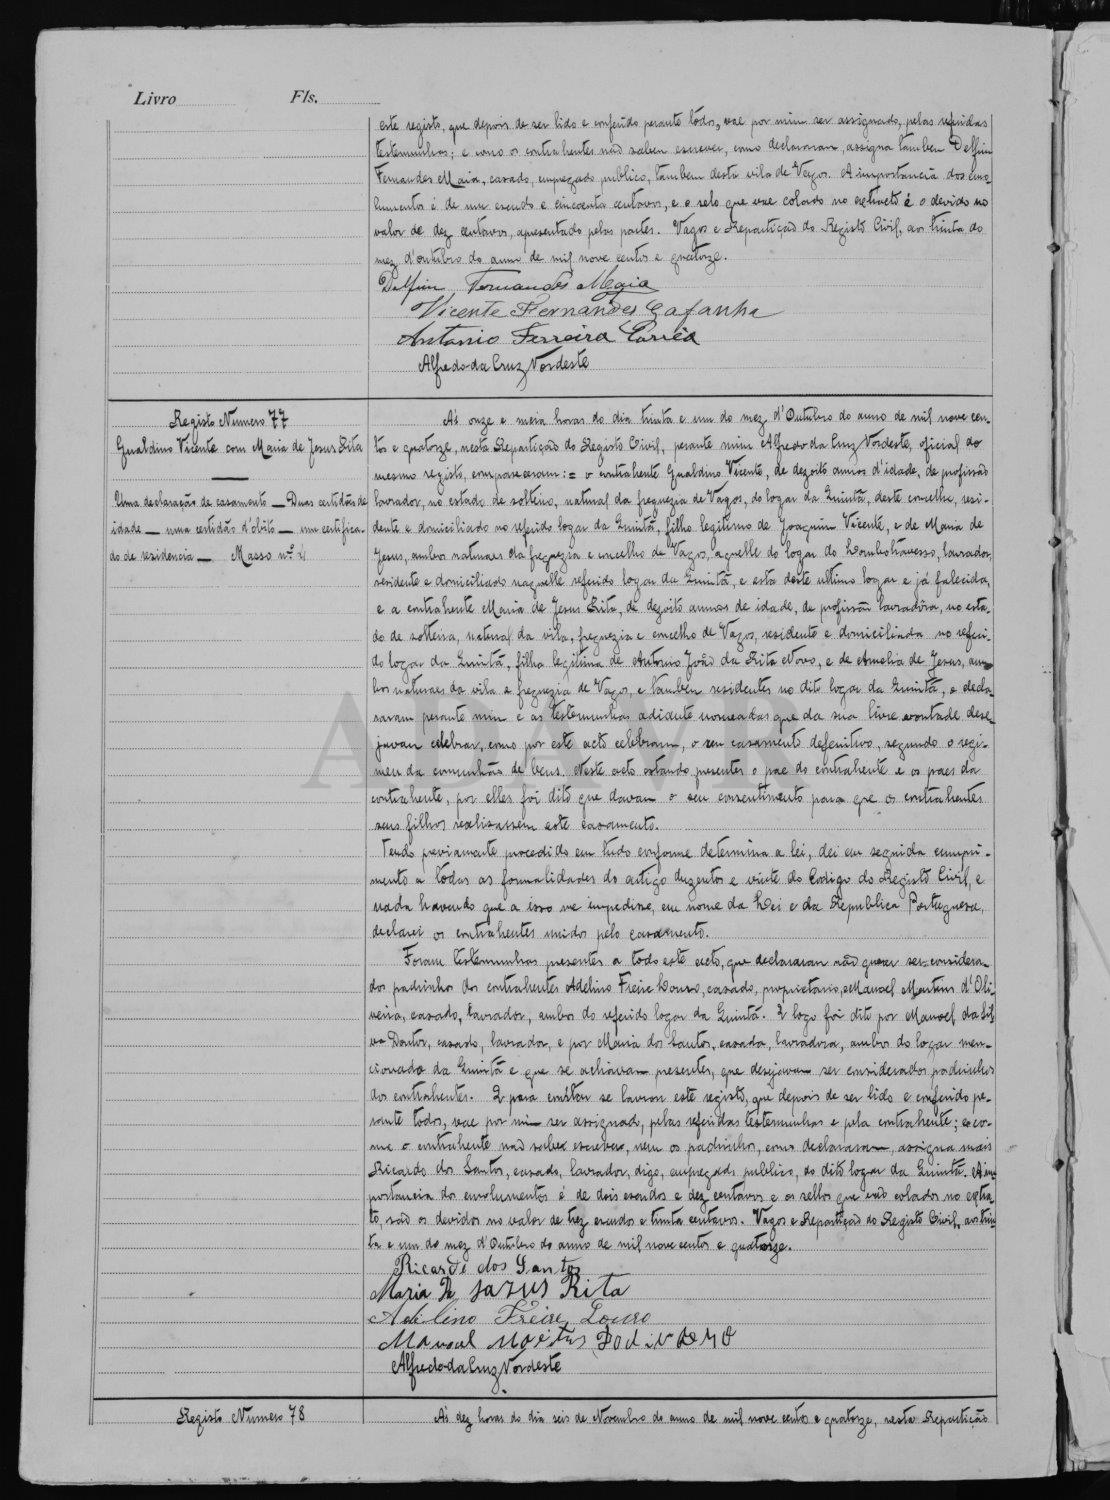 Livro Fls.
este registo, que depois de ser lido e conferido perante todos, vae por mim ser assignado, pelas referidas
testemunhas; e como os contrahentes não sabem escrever, como declararam, assigna tambem Delfim
Fernandes Maia, casado, empregado publico, tambem desta vila de Vagos. A importancia dos emo-
lumentos é de um escudo e cincoenta centavos, e o selo que vae colado no extracto é o devido no
valor de dez centavos, apresentado pelas partes. Vagos e Repartição do Registo Civil, aos trinta do
mez d'outubro do anno de mil nove centos e quatorze.
Delfim Fernandes Maia
Vicente Fernandes Gafanha
Antonio Ferreira Corrêa
Alfredo da Cruz Nordeste
Registo Numero 77
Gualdino Vicente com Maria de Jesus Rita
Uma declaração de casamento — Duas certidões de
idade — uma certidão d'obito — um certifica-
do de residencia — Masso nº 4
Ás onze e meia horas do dia trinta e um do mez d'Outubro do anno de mil nove cen-
tos e quatorze, nesta Repartição do Registo Civil, perante mim Alfredo da Cruz Nordeste, oficial do
mesmo registo, compareceram: = o contrahente Gualdino Vicente, de dezoito annos d'idade, de profissão
lavrador, no estado de solteiro, natural da freguezia de Vagos, do logar da Quintã, deste concelho, resi-
dente e domiciliado no referido logar da Quintã, filho legitimo de Joaquim Vicente, e de Maria de
Jesus, ambos naturaes da freguezia e concelho de Vagos, aquelle do logar do Lombo travesso, lavrador,
residente e domiciliado naquelle referido logar da Quintã, e esta deste ultimo logar e já falecida,
e a contrahente Maria de Jesus Rita, de dezoito annos de idade, de profissão lavradôra, no esta-
do de solteira, natural da vila, freguezia e concelho de Vagos, residente e domiciliada no referi-
do logar da Quintã, filha legitima de Antonio João da Rita Novo, e de Amelia de Jesus, am-
bos naturaes da vila e freguezia de Vagos, e tambem residentes no dito logar da Quintã, e decla-
raram perante mim e as testemunhas adiante nomeadas que da sua livre vontade dese-
javam celebrar, como por este acto celebram, o seu casamento definitivo, segundo o regi-
men da comunhão de bens. Neste acto estando presentes o pae do contrahente e os paes da
contrahente, por elles foi dito que davam o seu consentimento para que os contrahentes
seus filhos realisassem este casamento.
Tendo previamente procedido em tudo conforme determina a lei, dei em seguida cumpri-
mento a todas as formalidades do artigo duzentos e vinte do Codigo do Registo Civil, e
nada havendo que a isso me impedisse, em nome da Lei e da Republica Portuguesa,
declarei os contrahentes unidos pelo casamento.
Foram testemunhas presentes a todo este acto, que declararam não querer ser considera-
dos padrinhos dos contrahentes Adelino Freire Louro, casado, proprietario, e Manoel Martins d'Oli-
veira, casado, lavrador, ambos do referido logar da Quintã. E logo foi dito por Manoel da Sil-
va Doutor, casado, lavrador, e por Maria dos Santos, casada, lavradora, ambos do logar men-
cionado da Quintã e que se achavam presentes, que desejavam ser considerados padrinhos
dos contrahentes. E para constar se lavrou este registo, que depois de ser lido e conferido pe-
rante todos, vae por mim ser assignado, pelas referidas testemunhas e pela contrahente; e co-
mo o contrahente não sabe escrever, nem os padrinhos, como declararam, assigna mais
Ricardo dos Santos, casado, lavrador, digo, empregado publico, do dito logar da Quintã. A im-
portancia dos emolumentos é de dois escudos e dez centavos e os sellos que vão colados no extra-
to, são os devidos no valor de trez escudos e trinta centavos. Vagos e Repartição do Registo Civil, aos trin-
ta e um do mez d'Outubro do anno de mil nove centos e quatorze.
Ricardo dos Santos
Maria De Jazus Rita
Adelino Freire Louro
Manoel
Alfredo da Cruz Nordeste
Registo Numero 78
Ás dez horas do dia seis de Novembro do anno de mil nove centos e quatorze, nesta Repartição
ADAVR